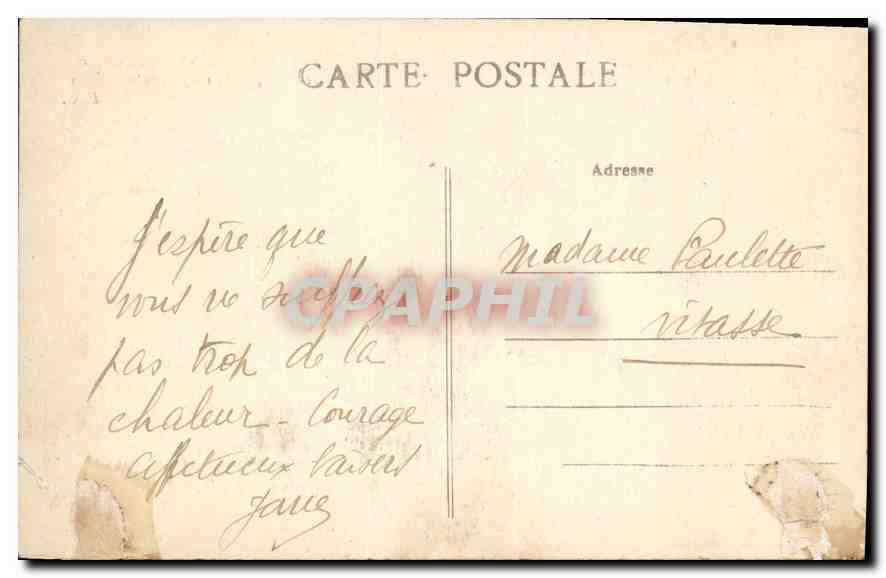 CARTE POSTALE
Adresse
J'espère que
vous ne souffrez
pas trop de la
chaleur - Courage
affectueux baisers
Jane
Madame Paulette
Vitasse
CPAPHIL